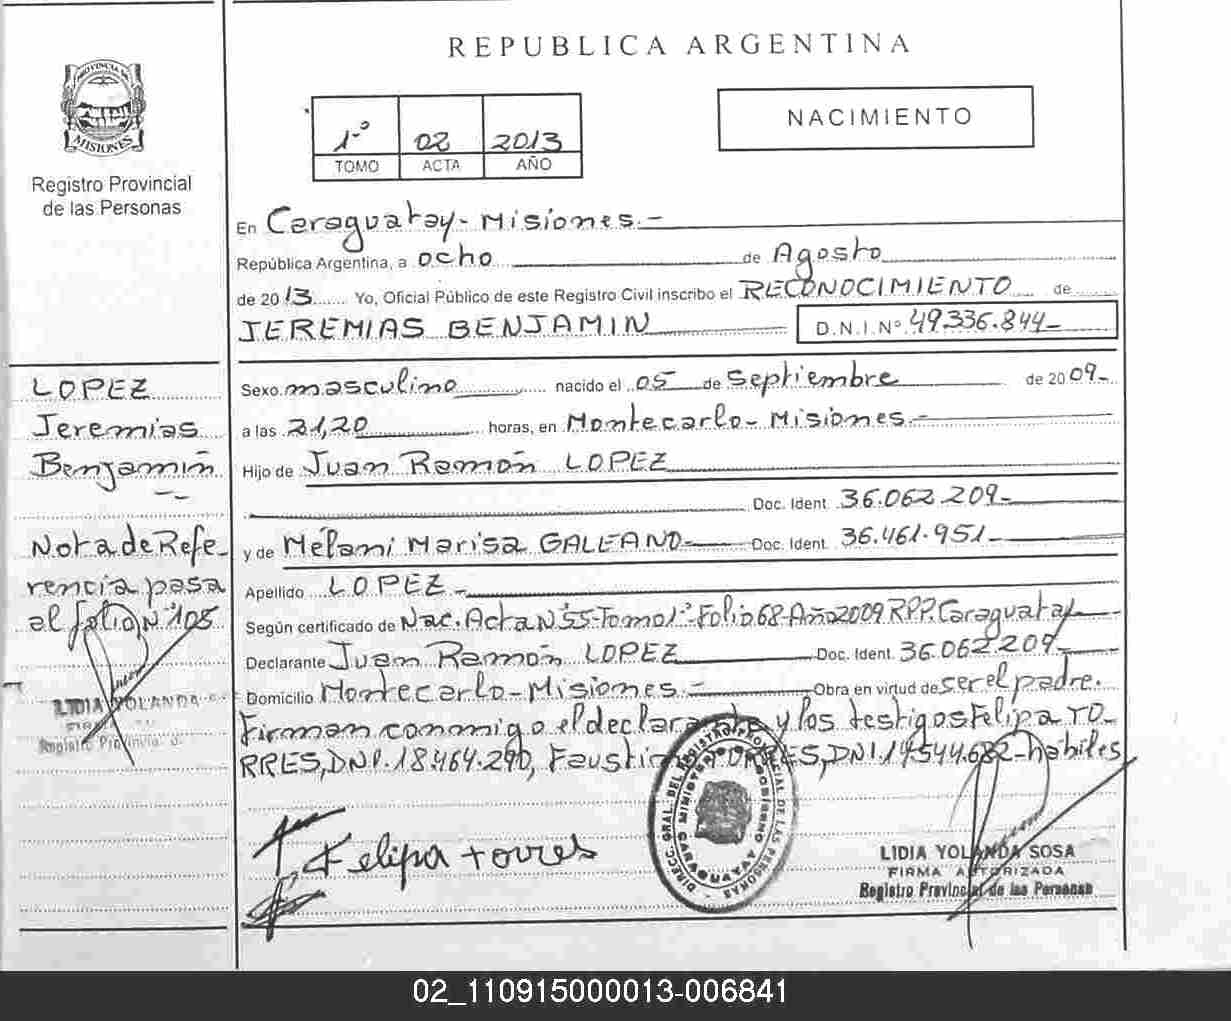 REPUBLICA ARGENTINA
PROVINCIA DE
MISIONES
Registro Provincial
de las Personas
1º 02 2013
TOMO ACTA AÑO
NACIMIENTO
En Caraguatay - Misiones.-
República Argentina, a ocho de Agosto
de 2013 Yo, Oficial Público de este Registro Civil inscribo el RECONOCIMIENTO de
JEREMIAS BENJAMIN D.N.I.Nº 49.336.844-
LOPEZ
Jeremias
Benjamín
Nota de Refe-
rencia pasa
al folio Nº 105
LIDIA YOLANDA
Registro Provincial
Sexo masculino nacido el 05 de septiembre de 2009-
a las 21,20 horas, en Montecarlo - Misiones.-
Hijo de Juan Ramón LOPEZ
Doc. Ident. 36.062.209-
y de Mélani Marisa GALEANO- Doc. Ident. 36.461.951-
Apellido LOPEZ-
Según certificado de Nac. Acta Nº 55-Tomo 1º-Folio 68-Año 2009 RPP. Caraguatay
Declarante Juan Ramón LOPEZ Doc. Ident. 36.062.209-
Domicilio Montecarlo - Misiones.- Obra en virtud de ser el padre.
Firman conmigo el declarante y los testigos Felipa TO-
RRES, DNI. 18.464.290, TORRES, DNI. 14.544.682-habiles
Felipa torres
DIRECC. GRAL. DEL REGISTRO PROVINCIAL DE LAS PERSONAS
MINISTERIO GOBIERNO
CARAGUATAY
LIDIA YOLANDA SOSA
FIRMA AUTORIZADA
Registro Provincial de las Personas
02_110915000013-006841